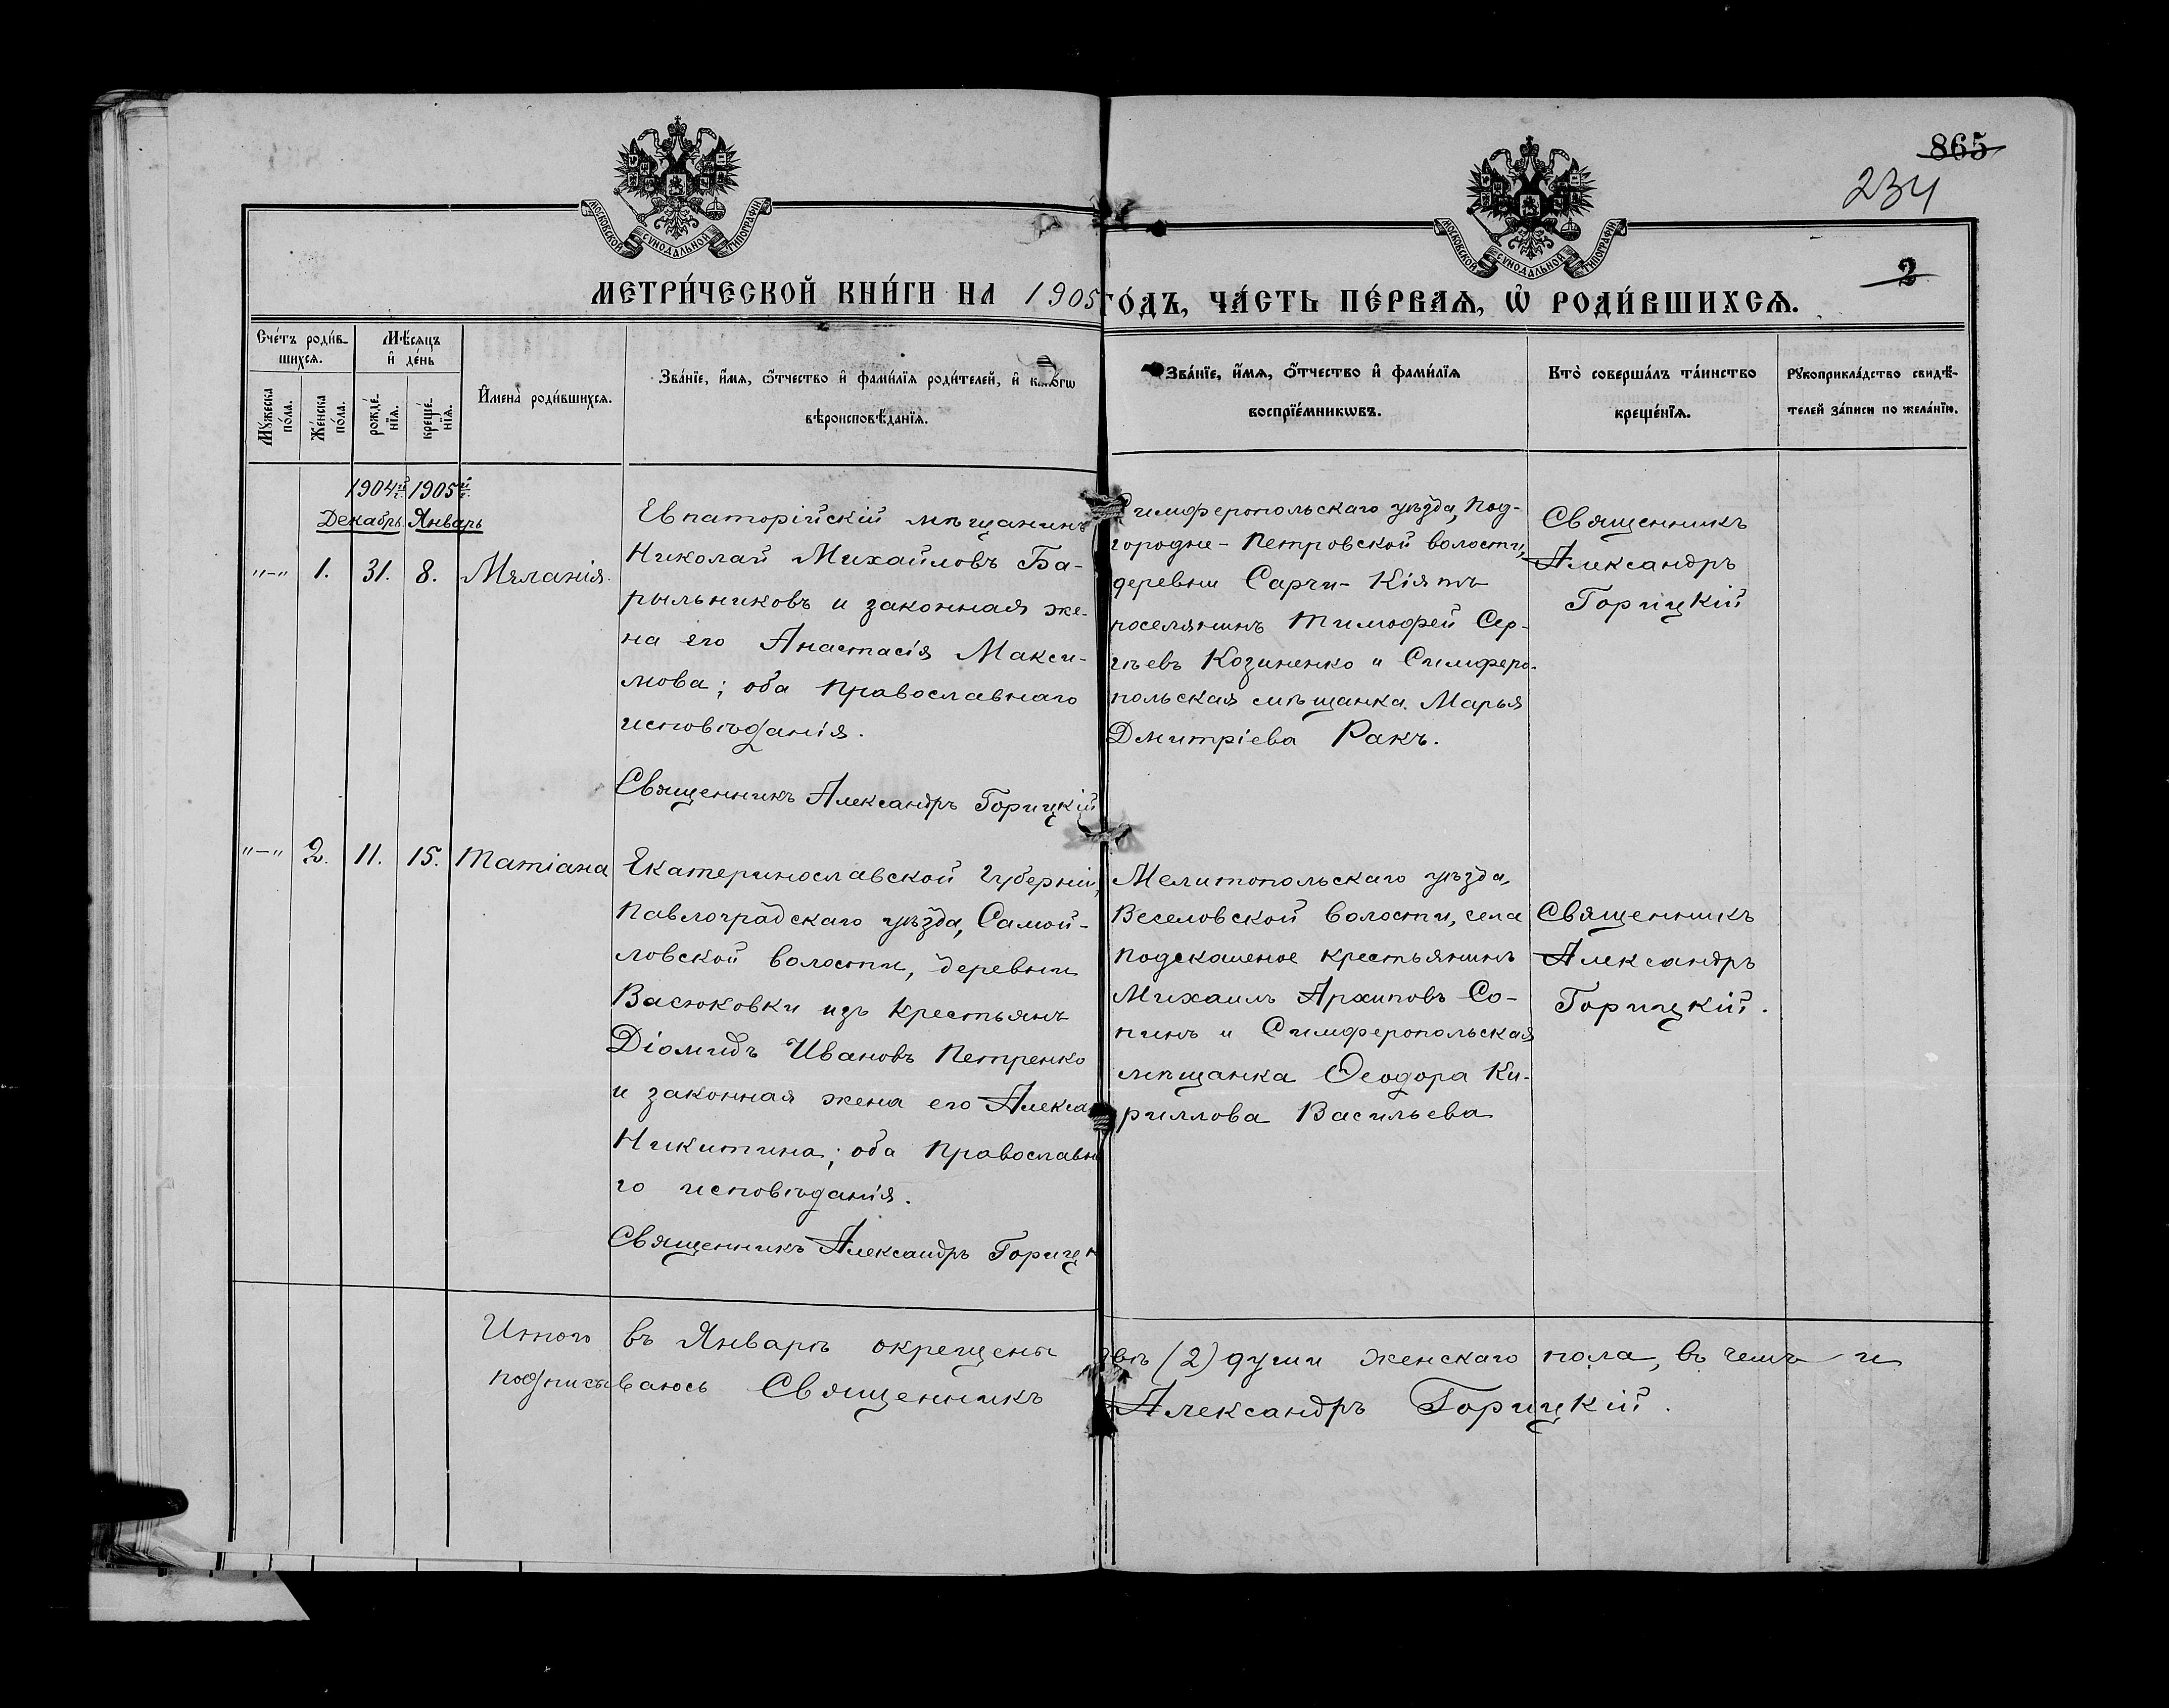 865
234
2
МОСКОВСКОЙ СѴНОДАЛЬНОЙ ТИПОГРАФІИ
МОСКОВСКОЙ СѴНОДАЛЬНОЙ ТИПОГРАФІИ
МЕТРИ́ЧЕСКОЙ КНИ́ГИ НА 1905 ГО́ДЪ, ЧА́СТЬ ПЕ́РВАѦ, Ѡ҆ РОДИ́ВШИХСѦ.
Сче́тъ роди́в-
шихсѧ.
Мѣ́сѧцъ
и҆ де́нь
Мꙋ́жеска
по́ла.
Же́нска
по́ла.
рожде́-
нїѧ.
креще́-
нїѧ.
И҆мена̀ роди́вшихсѧ.
Зва́нїе, и҆́мѧ, ѻ҆́тчество и҆ фами́лїѧ роди́телей, и҆ како́гѡ
вѣроисповѣ́данїѧ.
Зва́нїе, и҆́мѧ, ѻ҆́тчество и҆ фами́лїѧ
воспрїе́мникѡвъ.
Кто̀ соверша́лъ та́инство
креще́нїѧ.
Рꙋкоприкла́дство свидѣ́-
телей за́писи по жела́нїю.
1904й г. 1905й г.
Декабрь. Январь
"–" 1. 31. 8. Мѣланія.
Евпаторійскій мѣщанинъ
Николай Михайловъ Ба-
рыльниковъ и законная же-
на его Анастасія Макси-
мова; оба православнаго
исповѣданія.
Священникъ Александръ Горицкій
Симферопольскаго уѣзда, Под-
городне-Петровской волости,
деревни Сарчи-Кіятъ
поселянинъ Тимофей Сер-
гѣевъ Козиненко и Симферо-
польская мѣщанка Марья
Дмитріева Ракъ.
Священникъ
Александръ
Горицкій
"–" 2. 11. 15. Татіана
Екатеринославской губерніи,
Павлоградскаго уѣзда, Самой-
ловской волости, деревни
Васюковки изъ крестьянъ
Діомидъ Ивановъ Петренко
и законная жена его Алекса
Никитина; оба православн
го исповѣданія.
Священникъ Александръ Горицк
Мелитопольскаго уѣзда,
Веселовской волости, села
крестьянинъ
Михаилъ Архиповъ Со-
пинъ и Симферопольская
мѣщанка Ѳеодора Ки-
риллова Васильева
Священникъ
Александръ
Горицкій.
Итого въ Январѣ окрещены двѣ (2) души женскаго пола, въ чемъ и
подписываюсь Священникъ Александръ Горицкій.